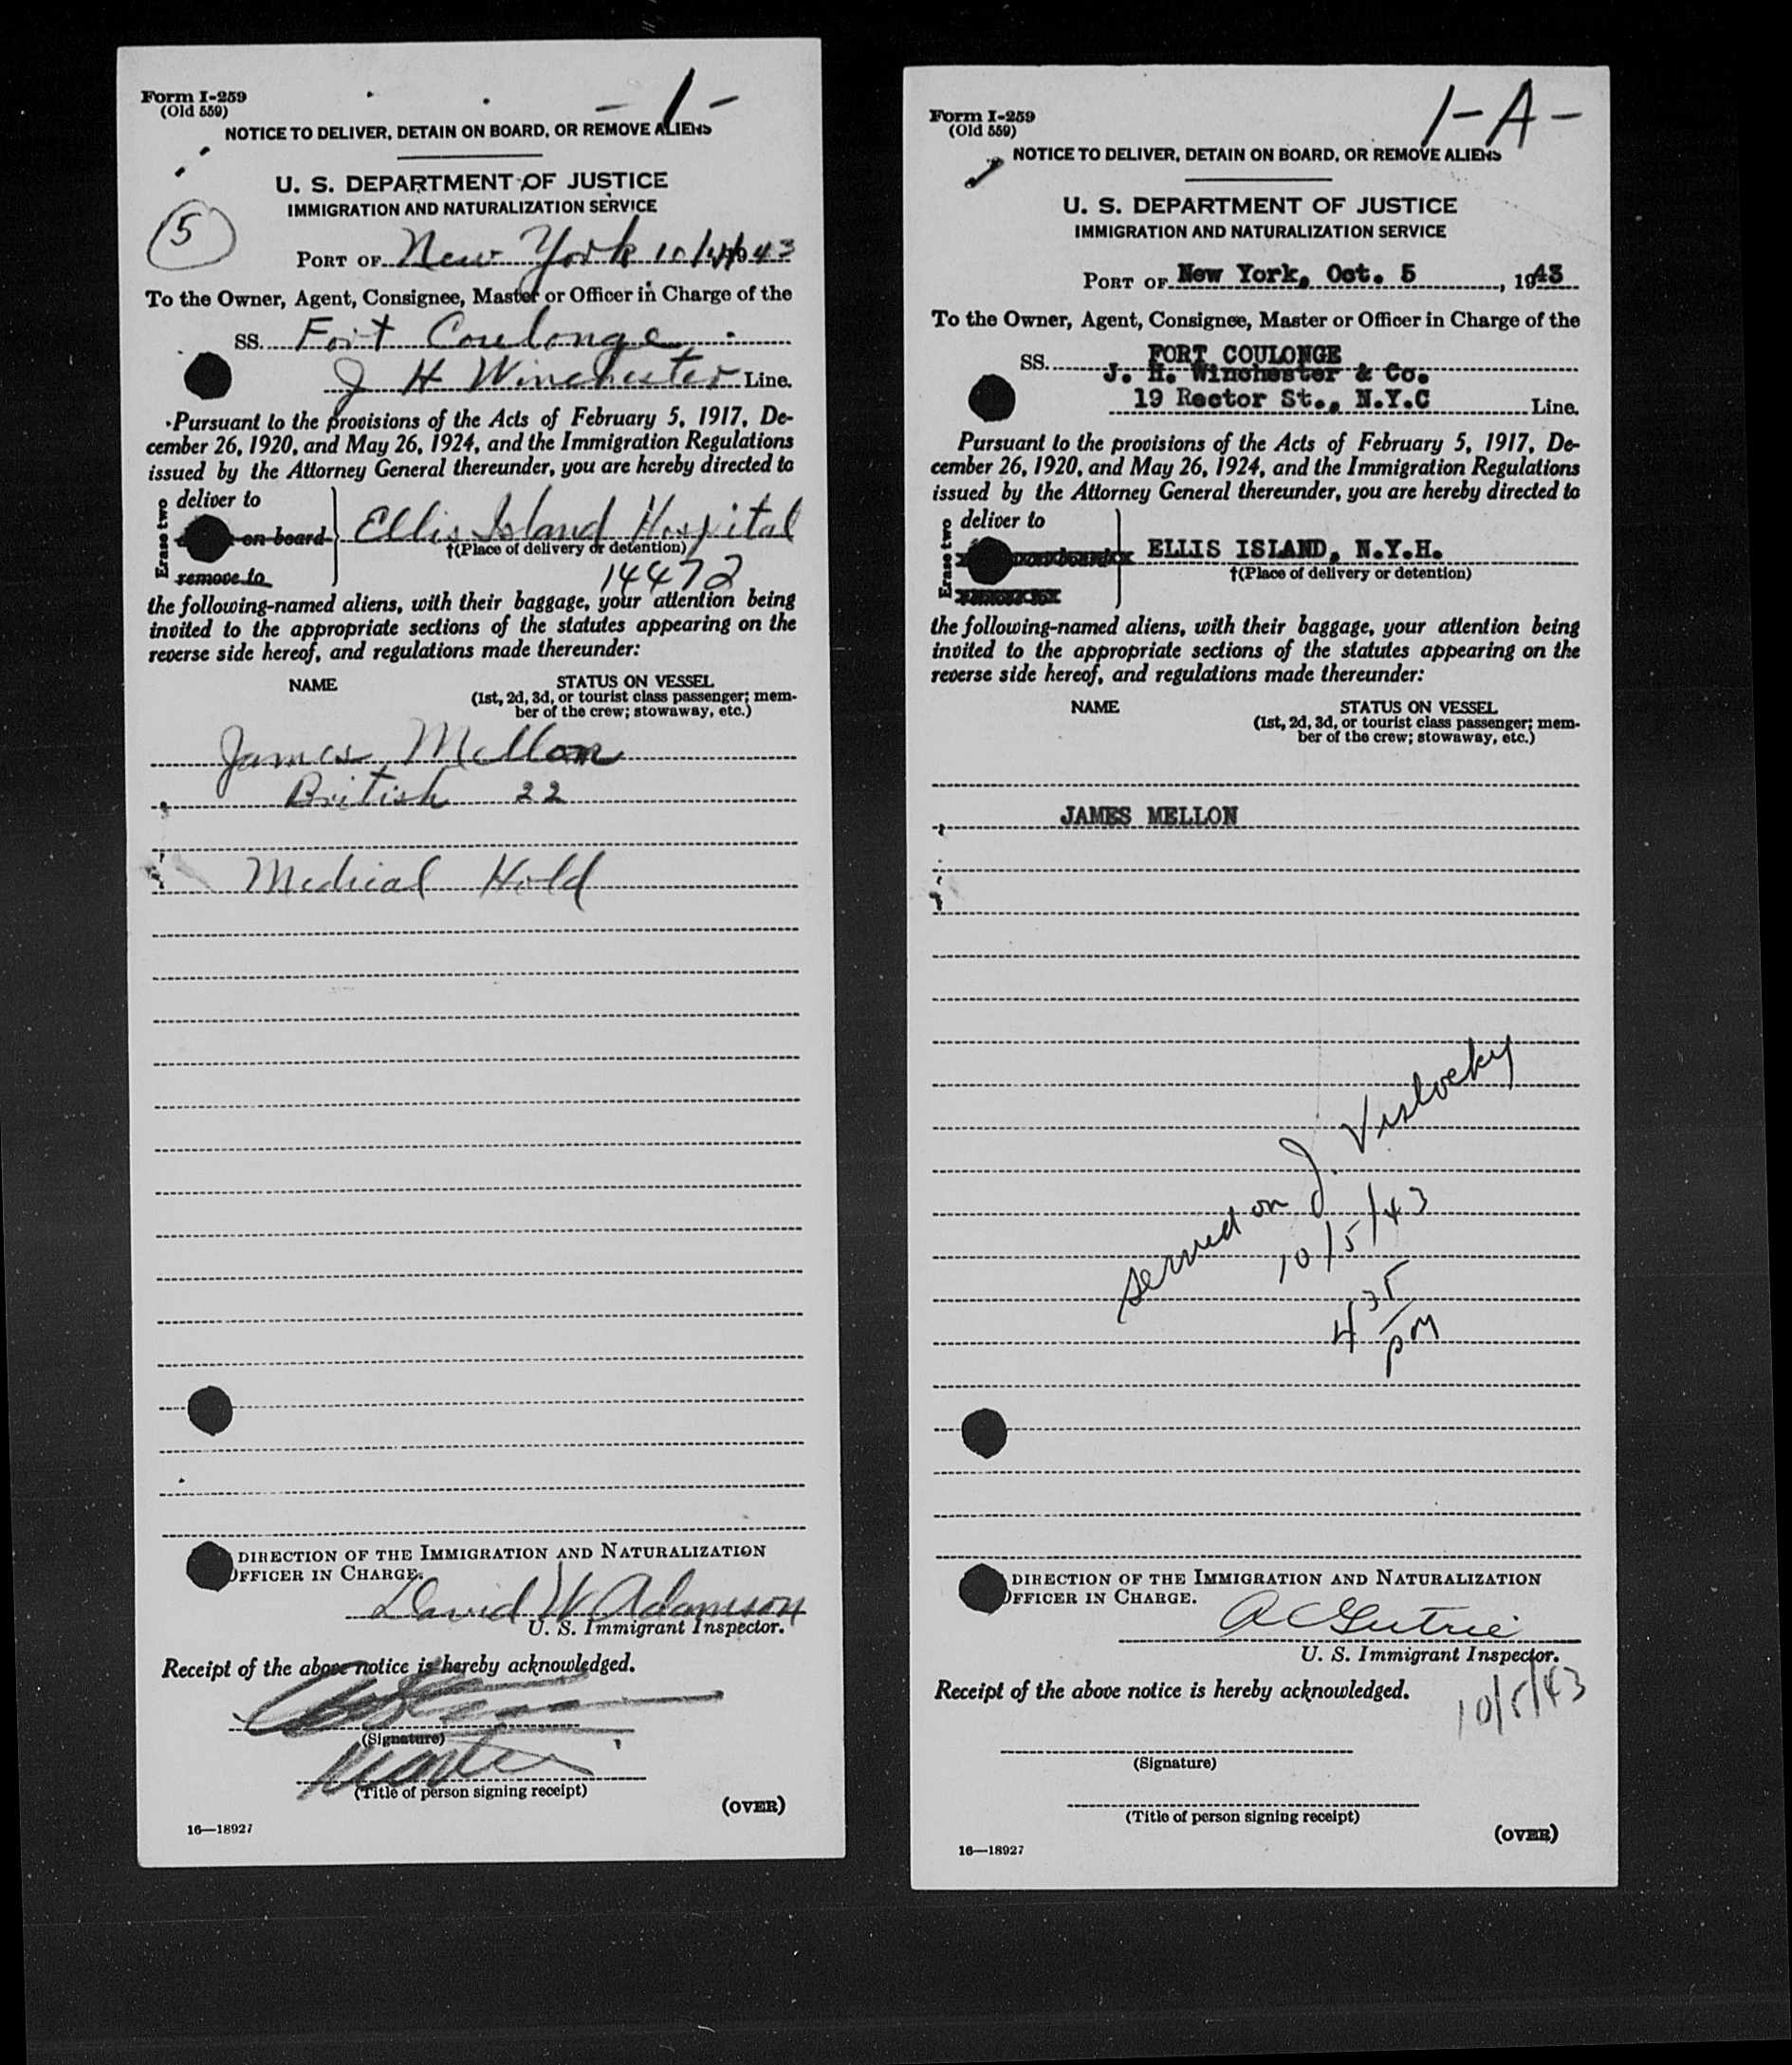 Form I-259
(Old 559)
- 1 -
NOTICE TO DELIVER, DETAIN ON BOARD, OR REMOVE ALIENS
U. S. DEPARTMENT OF JUSTICE
IMMIGRATION AND NATURALIZATION SERVICE
5
PORT OF New York 10/4/1943
To the Owner, Agent, Consignee, Master or Officer in Charge of the
SS. Fort Coulonge
J H Winchester Line.
Pursuant to the provisions of the Acts of February 5, 1917, De-
cember 26, 1920, and May 26, 1924, and the Immigration Regulations
issued by the Attorney General thereunder, you are hereby directed to
Erase two
deliver to
on board
remove to
Ellis Island Hospital
†(Place of delivery or detention)
14472
the following-named aliens, with their baggage, your attention being
invited to the appropriate sections of the statutes appearing on the
reverse side hereof, and regulations made thereunder:
NAME STATUS ON VESSEL
(1st, 2d, 3d, or tourist class passenger; mem-
ber of the crew; stowaway, etc.)
James Mellon
British 22
Medical Hold
DIRECTION OF THE IMMIGRATION AND NATURALIZATION
OFFICER IN CHARGE.
David W Adamson
U. S. Immigrant Inspector.
Receipt of the above notice is hereby acknowledged.
(Signature)
Master
(Title of person signing receipt)
(OVER)
16—18927
Form I-259
(Old 559)
1-A-
NOTICE TO DELIVER, DETAIN ON BOARD, OR REMOVE ALIENS
U. S. DEPARTMENT OF JUSTICE
IMMIGRATION AND NATURALIZATION SERVICE
PORT OF New York, Oct. 5, 1943
To the Owner, Agent, Consignee, Master or Officer in Charge of the
SS. FORT COULONGE
J. H. Winchester & Co.
19 Rector St., N.Y.C Line.
Pursuant to the provisions of the Acts of February 5, 1917, De-
cember 26, 1920, and May 26, 1924, and the Immigration Regulations
issued by the Attorney General thereunder, you are hereby directed to
Erase two
deliver to
ELLIS ISLAND, N.Y.H.
†(Place of delivery or detention)
the following-named aliens, with their baggage, your attention being
invited to the appropriate sections of the statutes appearing on the
reverse side hereof, and regulations made thereunder:
NAME STATUS ON VESSEL
(1st, 2d, 3d, or tourist class passenger; mem-
ber of the crew; stowaway, etc.)
JAMES MELLON
served on J. Vislocky
10/5/43
4 35 pm
DIRECTION OF THE IMMIGRATION AND NATURALIZATION
OFFICER IN CHARGE.
U. S. Immigrant Inspector.
Receipt of the above notice is hereby acknowledged.
10/5/43
(Signature)
(Title of person signing receipt)
(OVER)
16—18927